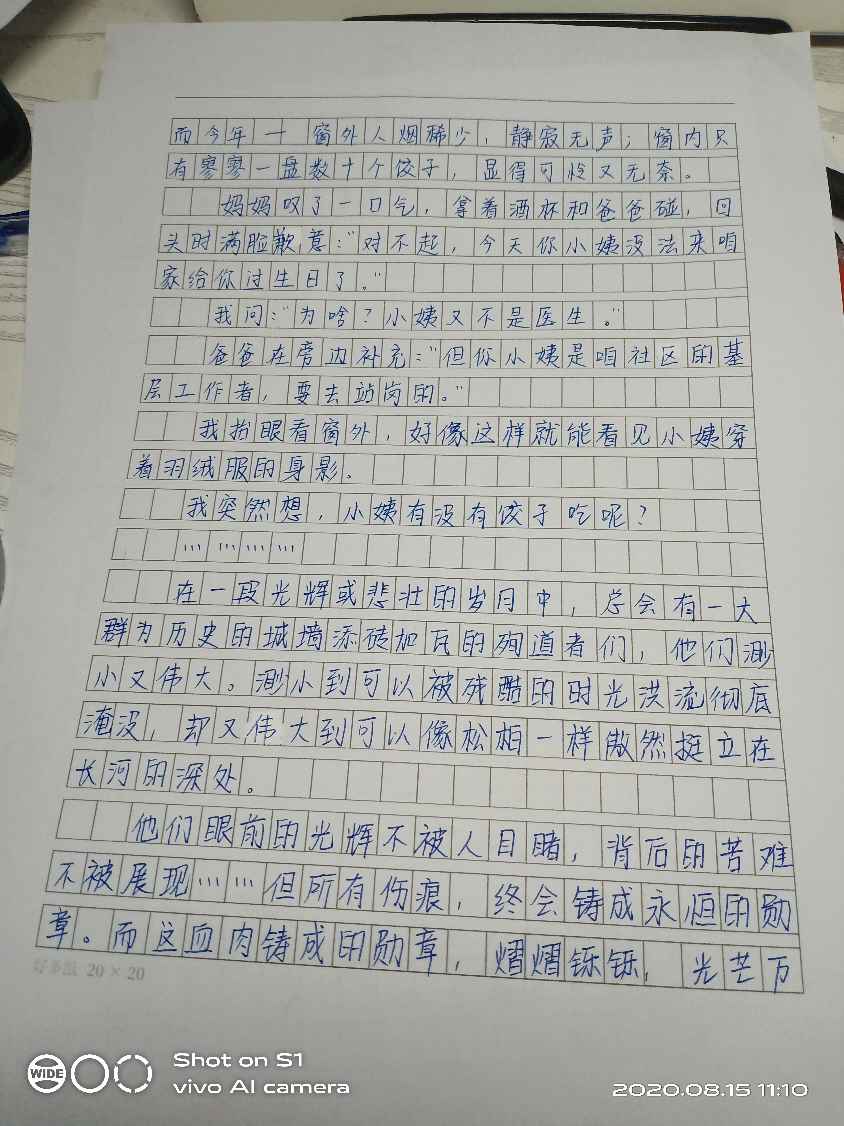 而今年 — 窗外人烟稀少，静寂无声；窗内只
有寥寥一盘数十个饺子，显得可怜又无奈。
妈妈叹了一口气，拿着酒杯和爸爸碰，回
头时满脸歉意：“对不起，今天你小姨没法来咱
家给你过生日了。”
我问：“为啥？小姨又不是医生。”
爸爸在旁边补充：“但你小姨是咱社区的基
层工作者，要去站岗的。”
我抬眼看窗外，好像这样就能看见小姨穿
着羽绒服的身影。
我突然想，小姨有没有饺子吃呢？
…………
在一段光辉或悲壮的岁月中，总会有一大
群为历史的城墙添砖加瓦的殉道者们，他们渺
小又伟大。渺小到可以被残酷的时光洪流彻底
淹没，却又伟大到可以像松柏一样傲然挺立在
长河的深处。
他们眼前的光辉不被人目睹，背后的苦难
不被展现……但所有伤痕，终会铸成永恒的勋
章。而这血肉铸成的勋章，熠熠铄铄，光芒万
好多纸 20×20
WIDE
Shot on S1
vivo AI camera
2020.08.15 11:10